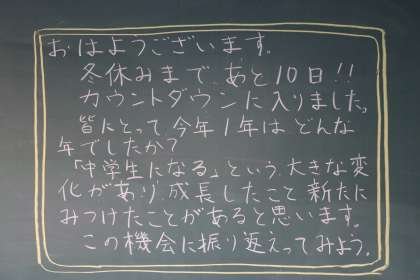 おはようございます。
冬休みまで、あと10日!!
カウントダウンに入りました。
皆にとって、今年1年は どんな
年でしたか?
「中学生になる」という、大きな変
化があり、成長したこと、新たに
みつけたことがあると思います。
この機会に振り返えってみよう。